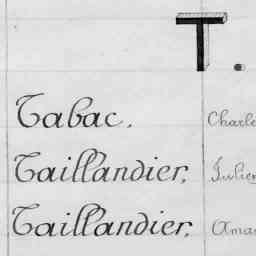 T.
Tabac, Charle
Taillandier, Julien
Taillandier, Aman